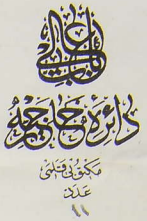 باب عالی
دائرهٔ خارجیه
مکتوبی قلمی
عدد
١١